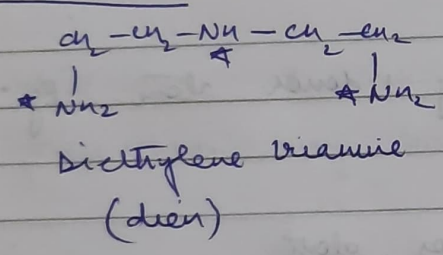 CH2 - CH2 - NH - CH2 - CH2
NH2 NH2
Diethylene triamine
(dien)